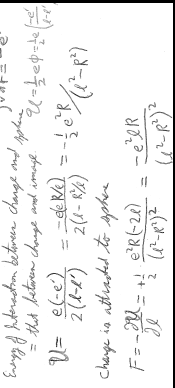 ∫ dF = - e'
Energy of Interaction between charge and sphere
= that between charge and image. U = ½ eφ = ½ e (-e'/(l-l'))
U = e(-e')/2(l-l') = -e(eR/l)/2(l-R²/l) = -½ e²R/(l²-R²)
charge is attracted to sphere
F = -∂U/∂l = +½ e²R(-2l)/(l²-R²)² = -e²lR/(l²-R²)²